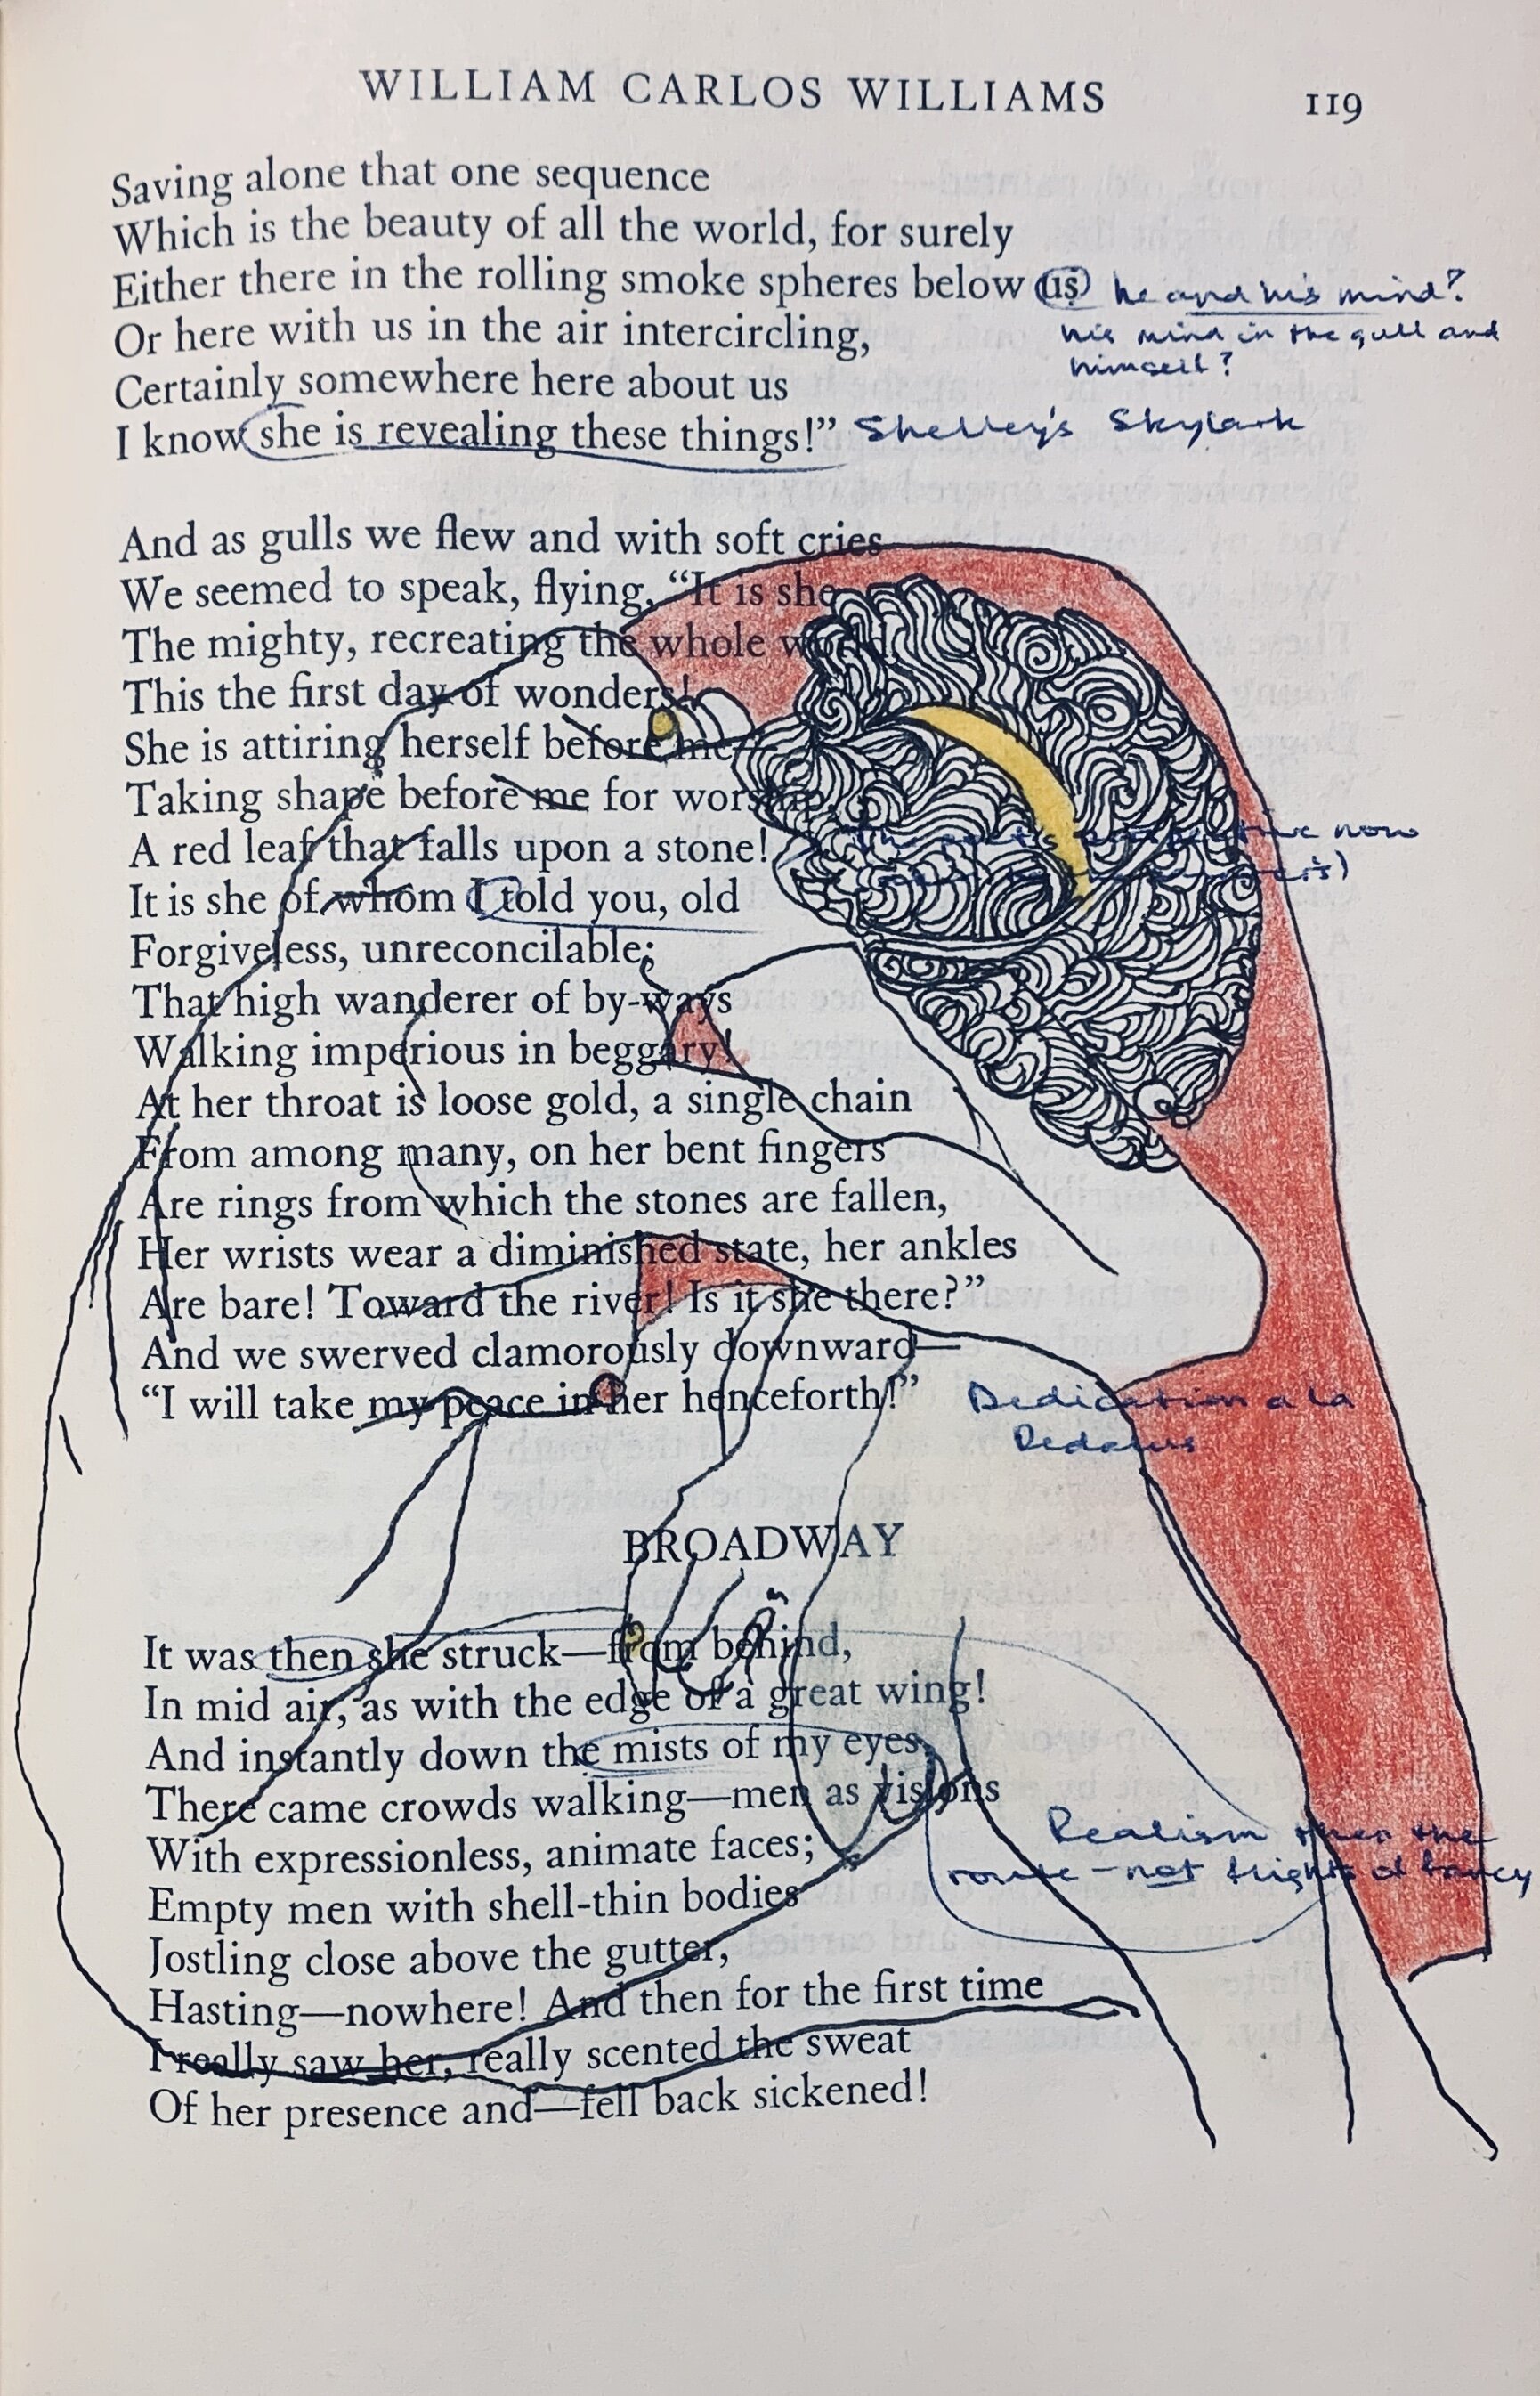 WILLIAM CARLOS WILLIAMS 119
Saving alone that one sequence
Which is the beauty of all the world, for surely
Either there in the rolling smoke spheres below us he and his mind?
Or here with us in the air intercircling, his mind in the gull and
himself?
Certainly somewhere here about us
I know she is revealing these things!” Shelley's Skylark
And as gulls we flew and with soft cries
We seemed to speak, flying, “It is she
The mighty, recreating the whole world,
This the first day of wonders!
She is attiring herself before me—
Taking shape before me for worship,
A red leaf that falls upon a stone! now
It is she of whom I told you, old
Forgiveless, unreconcilable;
That high wanderer of by-ways
Walking imperious in beggary!
At her throat is loose gold, a single chain
From among many, on her bent fingers
Are rings from which the stones are fallen,
Her wrists wear a diminished state, her ankles
Are bare! Toward the river! Is it she there?”
And we swerved clamorously downward—
“I will take my peace in her henceforth!” Dedication a la
Dedalus
BROADWAY
It was then she struck—from behind,
In mid air, as with the edge of a great wing!
And instantly down the mists of my eyes
There came crowds walking—men as visions
With expressionless, animate faces; Realism then the
route – not flights of fancy
Empty men with shell-thin bodies
Jostling close above the gutter,
Hasting—nowhere! And then for the first time
I really saw her, really scented the sweat
Of her presence and—fell back sickened!